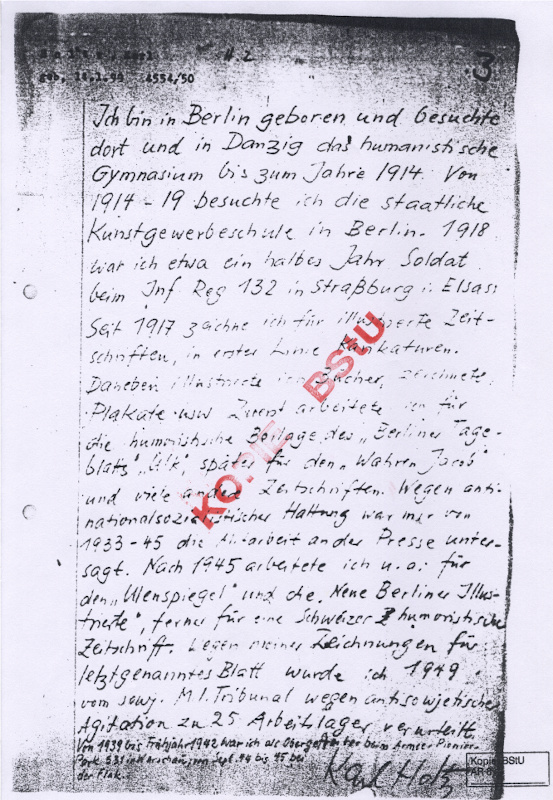 H 2
3
geb. 14.1.99 4554/50
Ich bin in Berlin geboren und besuchte
dort und in Danzig das humanistische
Gymnasium bis zum Jahre 1914. Von
1914-19 besuchte ich die staatliche
Kunstgewerbeschule in Berlin. 1918
war ich etwa ein halbes Jahr Soldat
beim Inf Reg 132 in Straßburg i. Elsas.
Seit 1917 zeichne ich für illustrierte Zeit-
schriften, in erster Linie Karikaturen.
Daneben illustrierte ich Bücher, zeichnete
Plakate usw Zuerst arbeitete ich für
die humoristische Beilage des „Berliner Tage-
blatts" „Ulk", später für den „Wahren Jacob"
und viele andere Zeitschriften. Wegen anti-
nationalsozialistischer Haltung war mir von
1933-45 die Mitarbeit an der Presse unter-
sagt. Nach 1945 arbeitete ich u.a. für
den „Ulenspiegel" und die „Neue Berliner Illus-
trierte", ferner für eine Schweizer humoristische
Zeitschrift. Wegen meiner Zeichnungen für
letztgenanntes Blatt wurde ich 1949
vom sowj. M.I. Tribunal wegen antisowjetischer
Agitation zu 25 Arbeitslager verurteilt.
Von 1939 bis Frühjahr 1942 war ich als Obergefreiter beim Armee Pionier-
Park 531 in Warschau, von Sept. 44 bis 45 bei
der Flak.
Karl Holtz
KOPIE BStU
Kopie BStU
AR 8